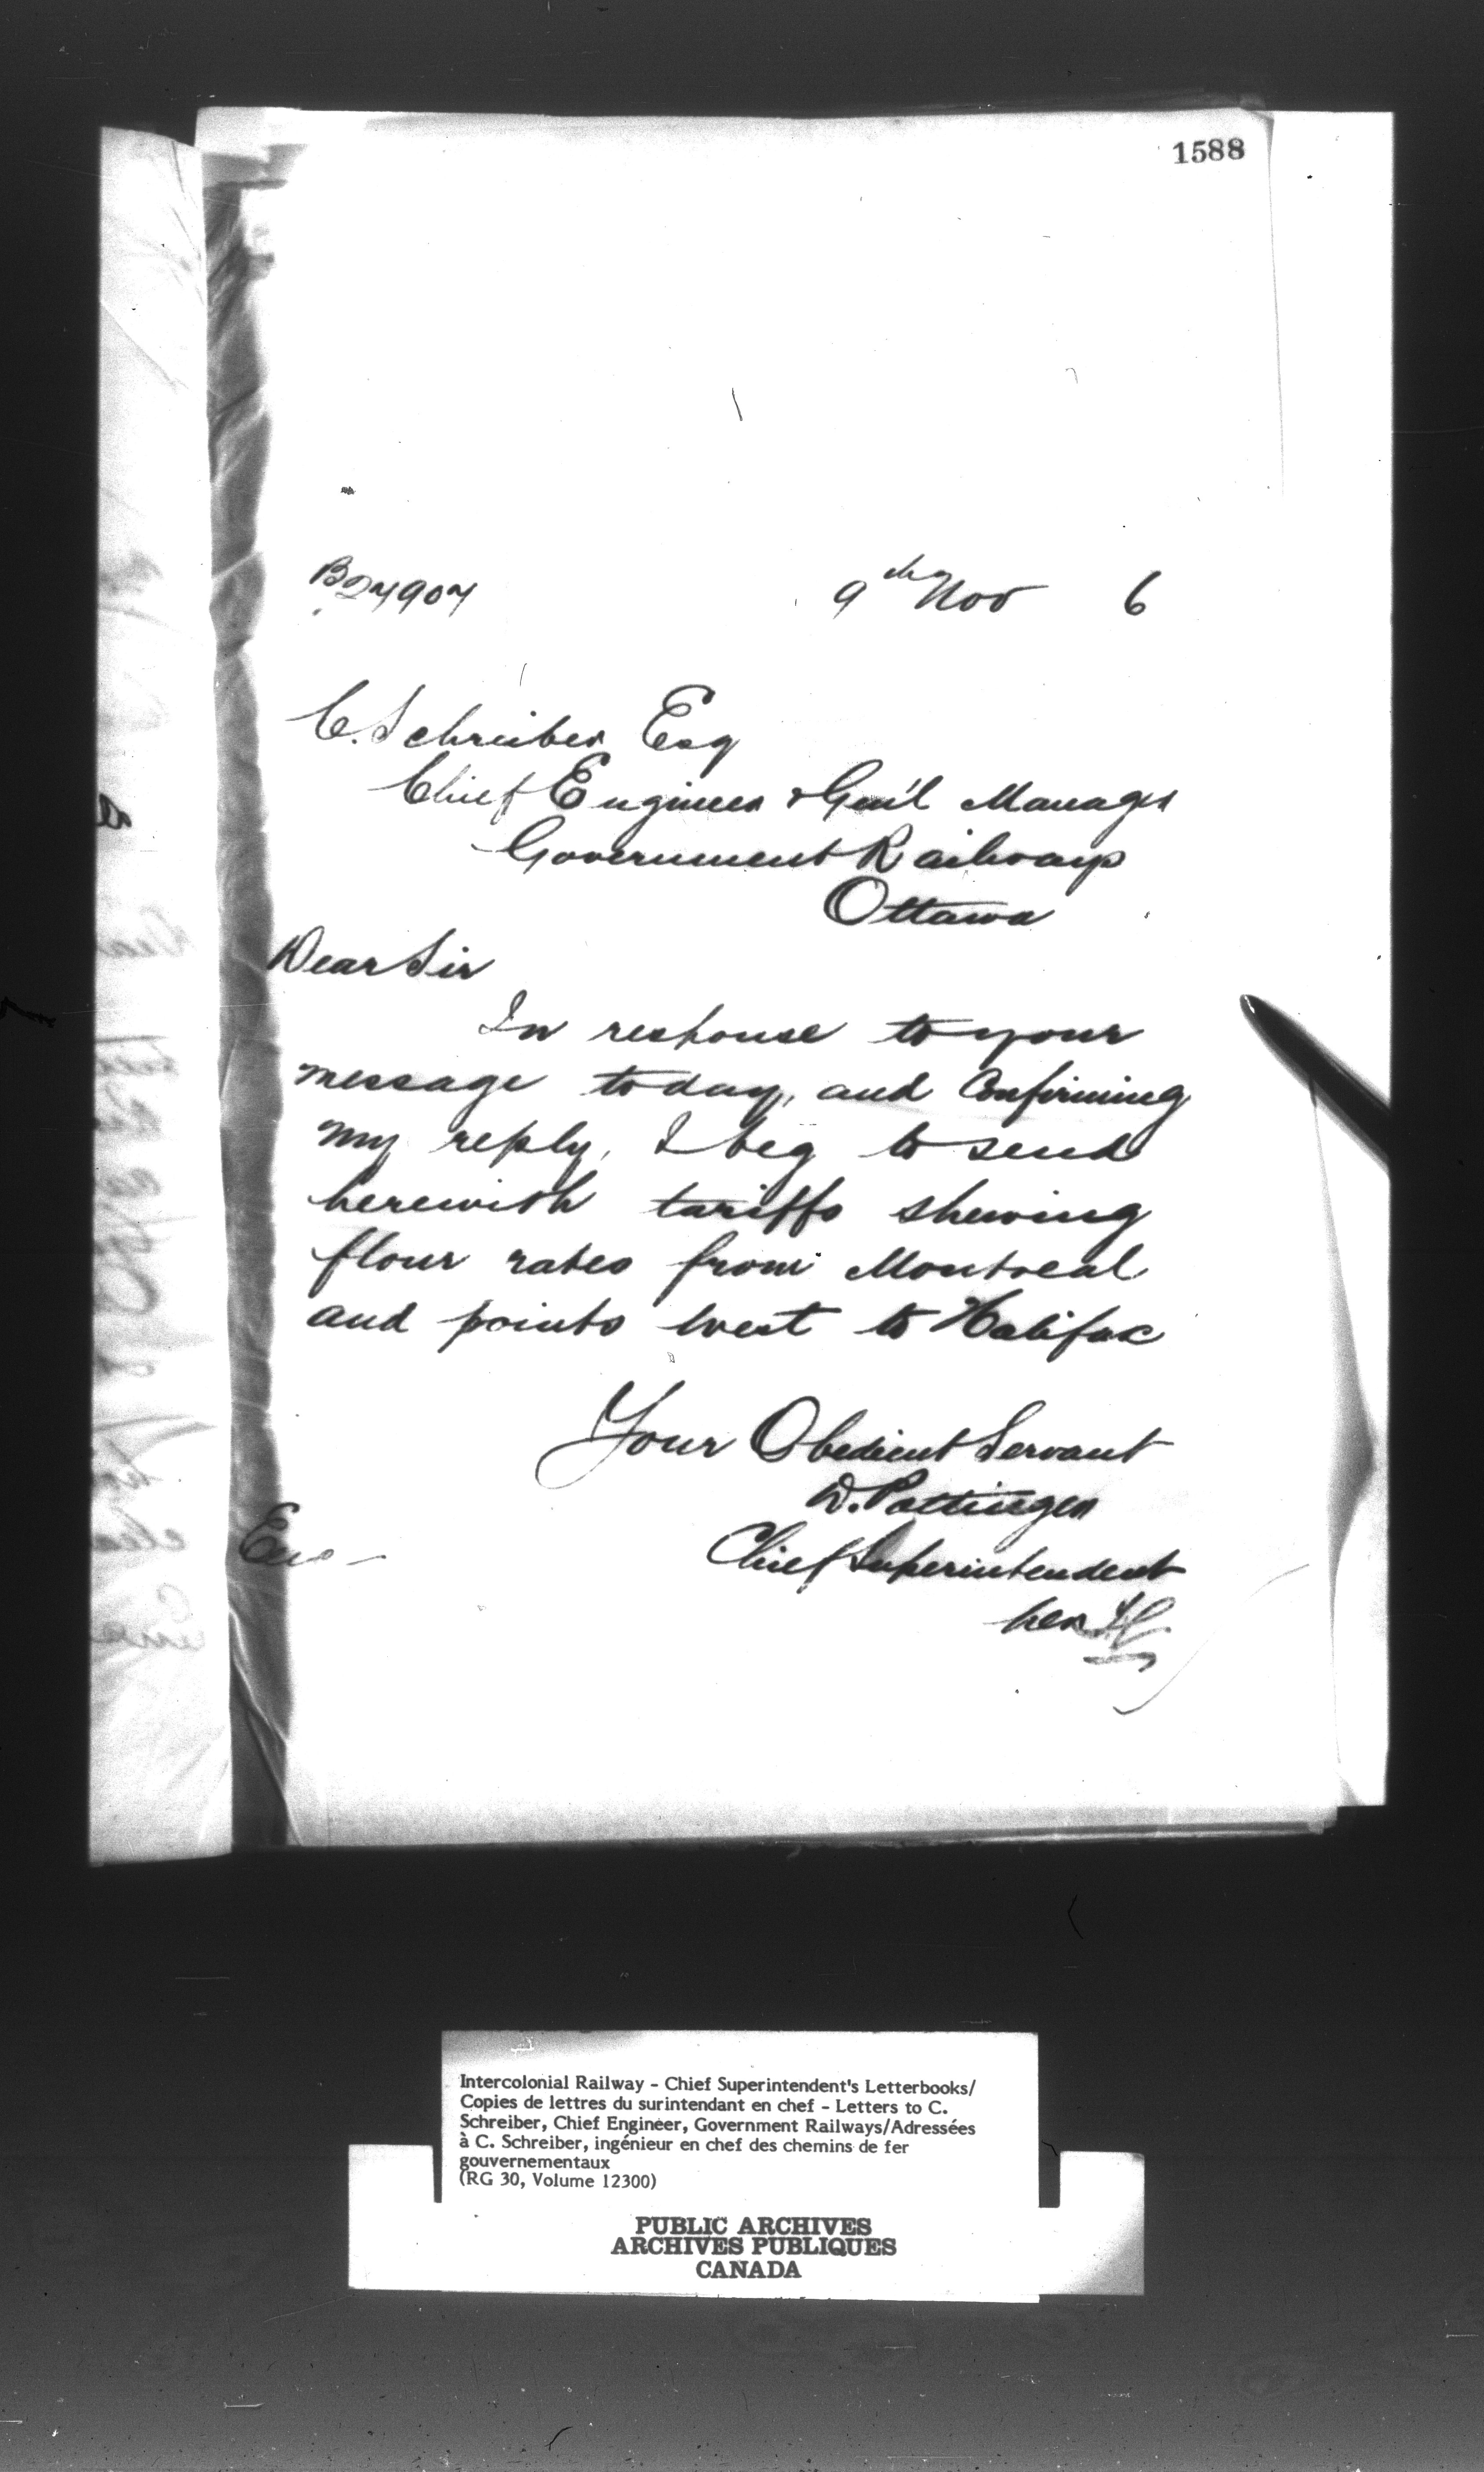 1588
B27907 9th Nov 6
C. Schreiber Esq
Chief Engineer & Gen'l Manager
Government Railways
Ottawa
Dear Sir
In response to your
message today, and Confirming
my reply, I beg to send
herewith tariffs shewing
flour rates from Montreal
and points west to Halifax
Your Obedient Servant
D. Pottinger
Chief Superintendent
Enc
Intercolonial Railway - Chief Superintendent's Letterbooks/
Copies de lettres du surintendant en chef - Letters to C.
Schreiber, Chief Engineer, Government Railways/Adressées
à C. Schreiber, ingénieur en chef des chemins de fer
gouvernementaux
(RG 30, Volume 12300)
PUBLIC ARCHIVES
ARCHIVES PUBLIQUES
CANADA